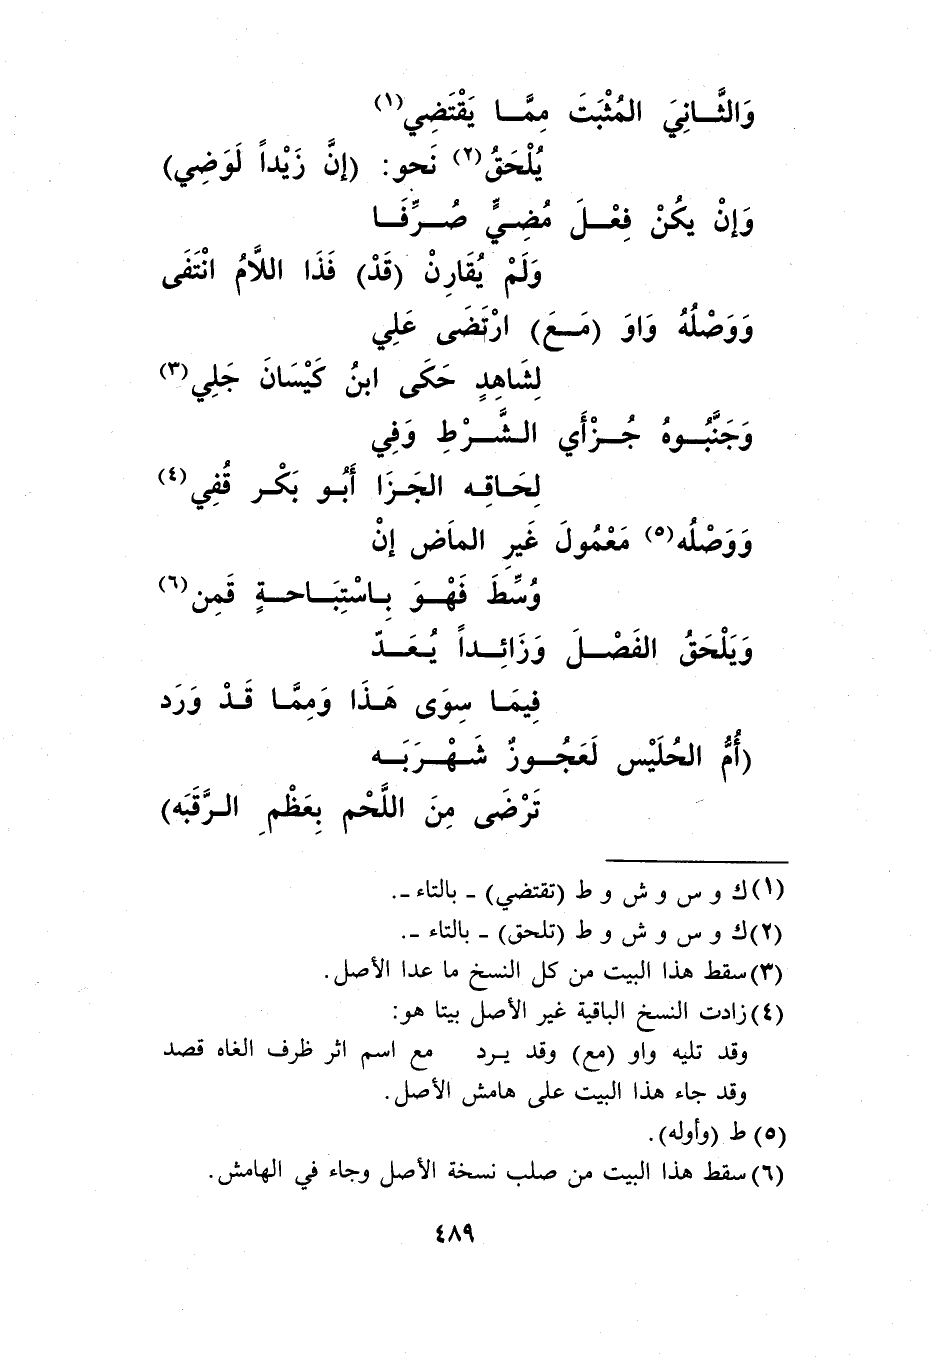 وَالثَّانِيَ المُثْبَتَ مِمَّا يَقْتَضِي(١)
يُلْحَقُ(٢) نَحو: (إنَّ زَيْداً لَوَضِي)
وَإنْ يكُنْ فِعْلَ مُضِيٍّ صُرِّفَا
وَلَمْ يُقَارِنْ (قَدْ) فَذَا اللَّامُ انْتَفَى
وَوَصْلُهُ وَاوَ (مَعَ) ارْتَضَى عَلِي
لِشَاهِدٍ حَكَى ابنُ كَيْسَانَ جَلِي(٣)
وَجَنَّبُوهُ جُزْأَي الشَّرْطِ وَفِي
لِحَاقِه الجَزَا أَبُو بَكْر قُفِي(٤)
وَوَصْلُه(٥) مَعْمُولَ غَيرِ المَاضِ إنْ
وُسِّطَ فَهْوَ بِاسْتِبَاحةٍ قَمِن(٦)
وَيَلْحَقُ الفَصْلَ وَزَائِداً يُعَدّ
فِيمَا سِوَى هَذَا وَمِمَّا قَدْ وَرَد
(أُمُّ الحُلَيْس لَعَجُوزٌ شَهْرَبَه
تَرْضَى مِنَ اللَّحْم بِعَظْمِ الرَّقَبَه)
(١) ك و س و ش و ط (تقتضي) ـ بالتاء ـ.
(٢) ك و س و ش و ط (تلحق) ـ بالتاء ـ.
(٣) سقط هذا البيت من كل النسخ ما عدا الأصل.
(٤) زادت النسخ الباقية غير الأصل بيتا هو:
وقد تليه واو (مع) وقد يرد مع اسم اثر ظرف الغاه قصد
وقد جاء هذا البيت على هامش الأصل.
(٥) ط (وأوله).
(٦) سقط هذا البيت من صلب نسخة الأصل وجاء في الهامش.
٤٨٩